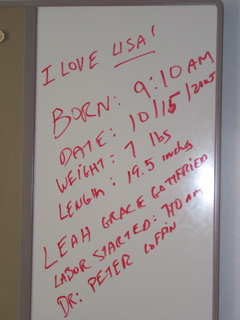 I LOVE LISA!
BORN: 9:10 AM
DATE: 10/15/2005
WEIGHT: 7 lbs
LENGTH: 19.5 inches
LEAH GRACE GOTTFRIED
LABOR STARTED: 7:40 am
DR: PETER COFFIN